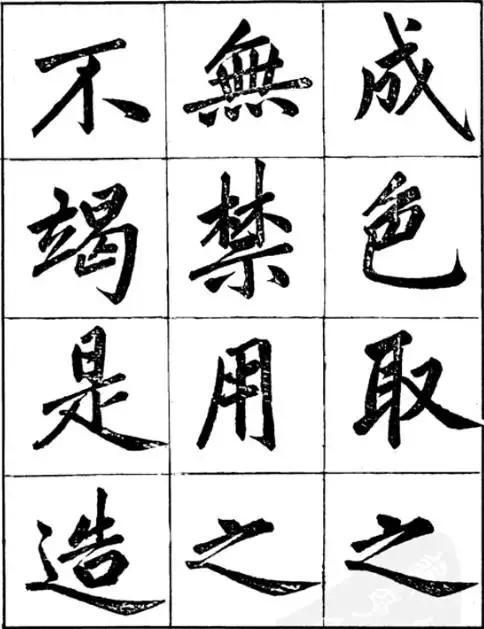 成色取之
無禁用之
不竭是造